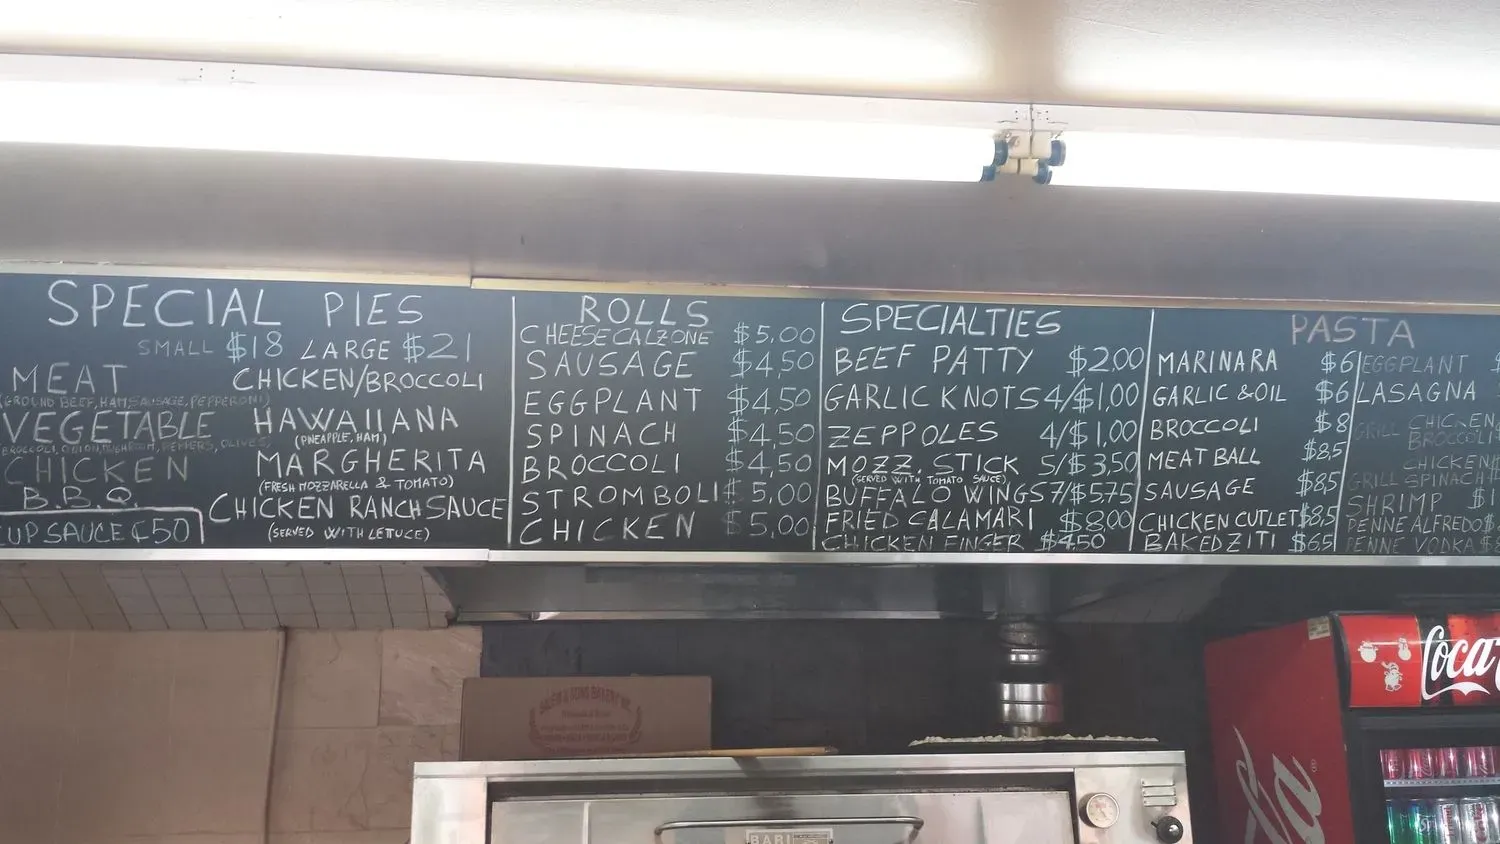 SPECIAL PIES
SMALL $18 LARGE $21
MEAT
(GROUND BEEF, HAM, SAUSAGE, PEPPERONI)
VEGETABLE
CHICKEN
B.B.Q.
CUP SAUCE ¢50
CHICKEN/BROCCOLI
HAWAIIANA
(PNEAPPLE, HAM)
MARGHERITA
(FRESH MOZZARELLA & TOMATO)
CHICKEN RANCH SAUCE
(SERVED WITH LETTUCE)
ROLLS
CHEESE CALZONE $5,00
SAUSAGE $4,50
EGGPLANT $4,50
SPINACH $4,50
BROCCOLI $4,50
STROMBOLI $5,00
CHICKEN $5,00
SPECIALTIES
BEEF PATTY $2.00
GARLIC KNOTS 4/$1,00
ZEPPOLES 4/$1,00
MOZZ. STICK 5/$3,50
(SERVED WITH TOMATO SAUCE)
BUFFALO WINGS 7/$5.75
FRIED CALAMARI $8.00
CHICKEN FINGER $4.50
PASTA
MARINARA $6
GARLIC & OIL $6
BROCCOLI $8
MEAT BALL $8,5
SAUSAGE $8,5
CHICKEN CUTLET $8,5
BAKED ZITI $6,5
EGGPLANT $
LASAGNA
GRILL CHICKEN
BROCCOLI
CHICKEN
GRILL SPINACH
SHRIMP $1
PENNE ALFREDO $
PENNE VODKA $
Coca
BARI